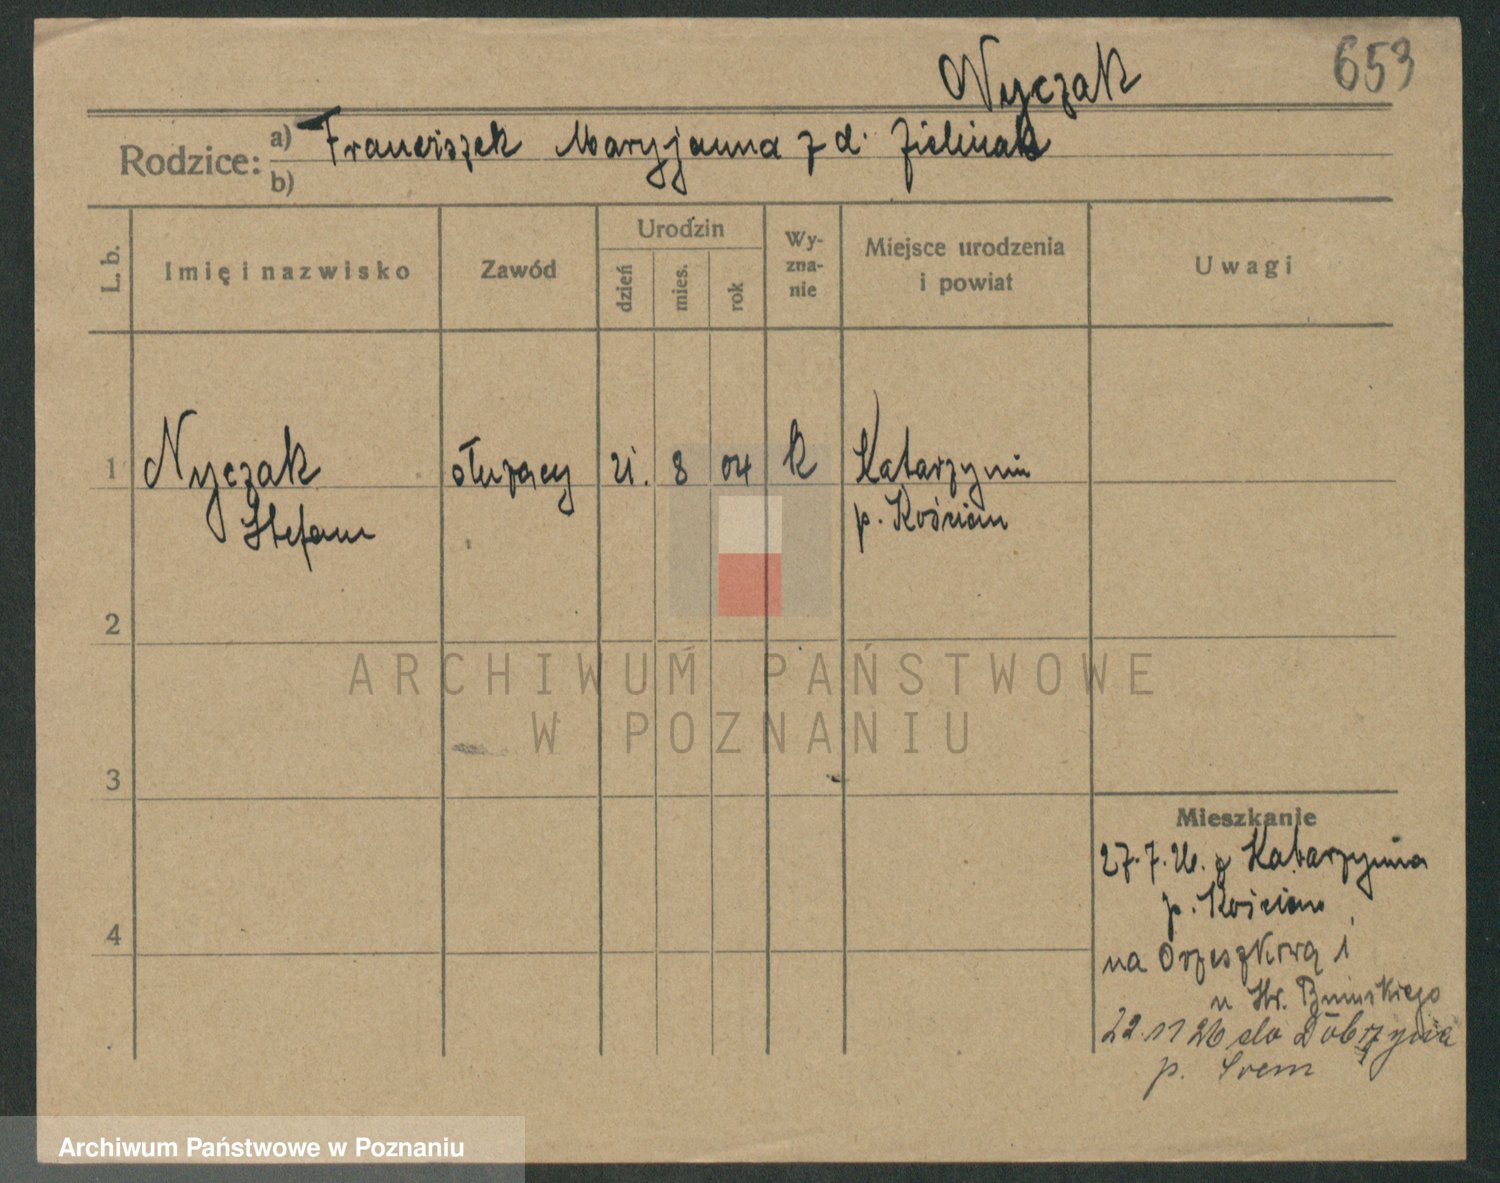 Nyczak
653
Rodzice: a) Franciszek Maryjanna z d. Zieliniak
b)
L. b.
Imię i nazwisko
Zawód
Urodzin
dzień
mies.
rok
Wy-
zna-
nie
Miejsce urodzenia
i powiat
Uwagi
1 Nyczak służący 21. 8 04 k Katarzynin
Stefan p. Kościan
2
ARCHIWUM PAŃSTWOWE
W POZNANIU
3
Mieszkanie
27.7.26. z Katarzynina
p. Kościan
4
na Orzeszkową 1
u Hr. Bnińskiego
22.11 26 do Dobrzyna
p. Śrem
Archiwum Państwowe w Poznaniu